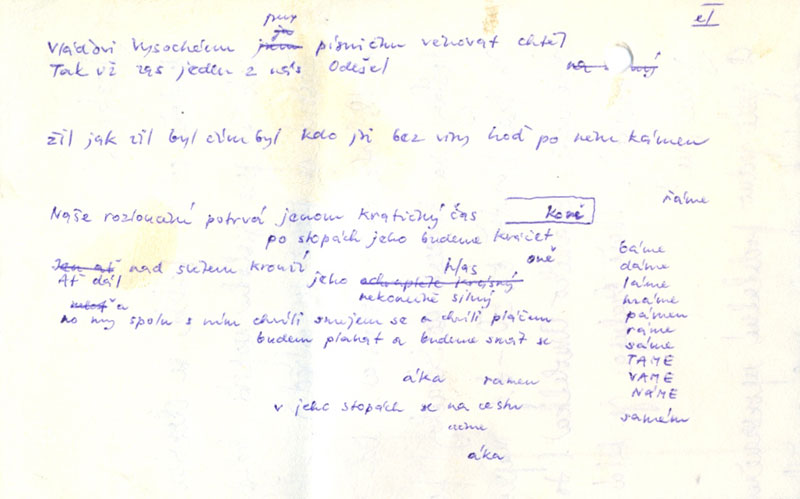 e1
prý
Vláďovi Vysockému jsem písničku věnovat chtěl
Tak už zas jeden z nás Odešel
na
žil jak žil byl čím byl kdo jsi bez viny hoď po něm kámen
ráme
Naše rozloučení potrvá jenom kratičký čas koně
po stopách jeho budeme kráčet
oně
Jen ať nad světem krouží hlas
Ať dál jeho ochraptěle krásný
nekonečně silný
a
no my spolu s ním chvíli smějem se a chvíli pláčem
budem plakat a budeme smát se
báme
dáme
láme
máme
pámen
ráme
sáme
TAME
VAME
NÁME
samém
áka ramen
v jeho stopách se na cestu
áka